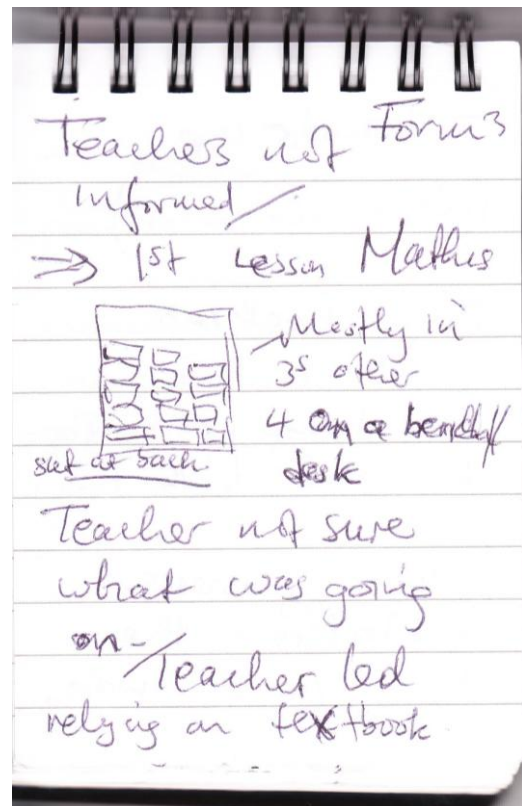 Teachers not Form 3
informed/
⇒ 1st Lesson Maths
Mostly in
3s other
4 on a bench/
desk
sat at back
Teacher not sure
what was going
on - / Teacher led
relying on textbook.